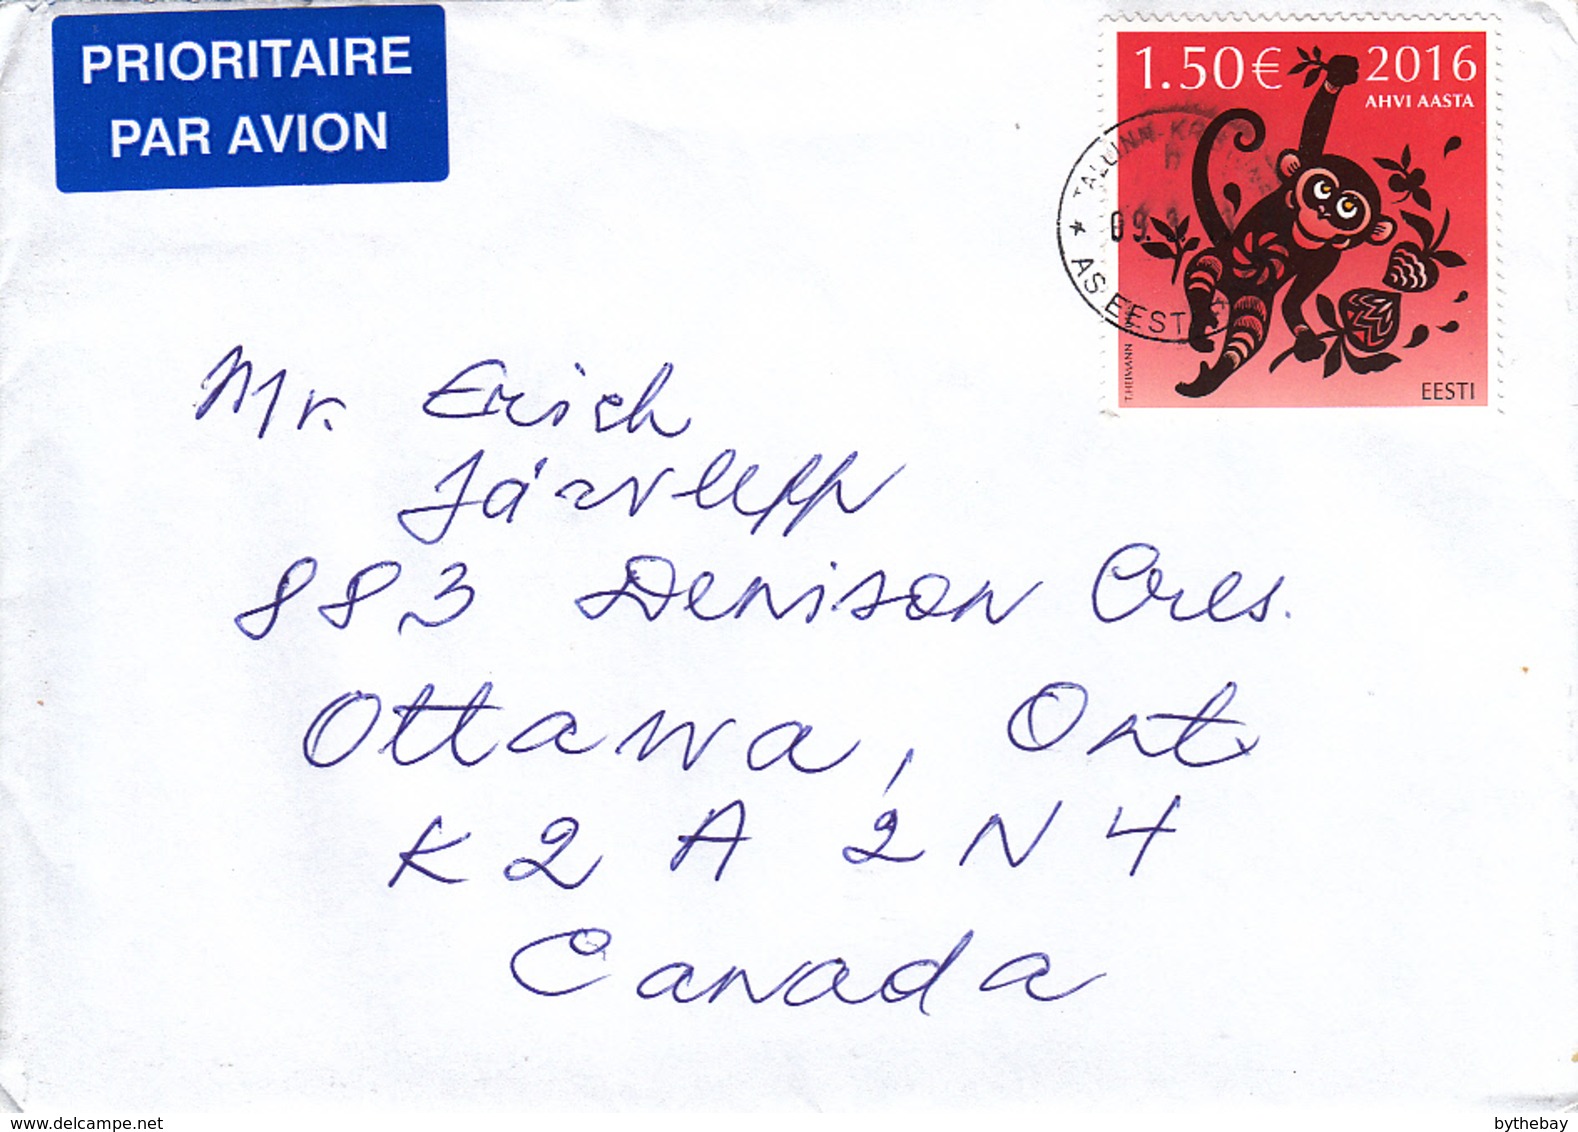 PRIORITAIRE
PAR AVION
1.50€
2016
AHVI AASTA
TALLINN
09.3.
AS EESTI
T.HEIMANN
EESTI
Mr. Erich
Järvlepp
883 Denison Cres.
Ottawa, Ont
K2A 2N4
Canada
www.delcampe.net
bythebay